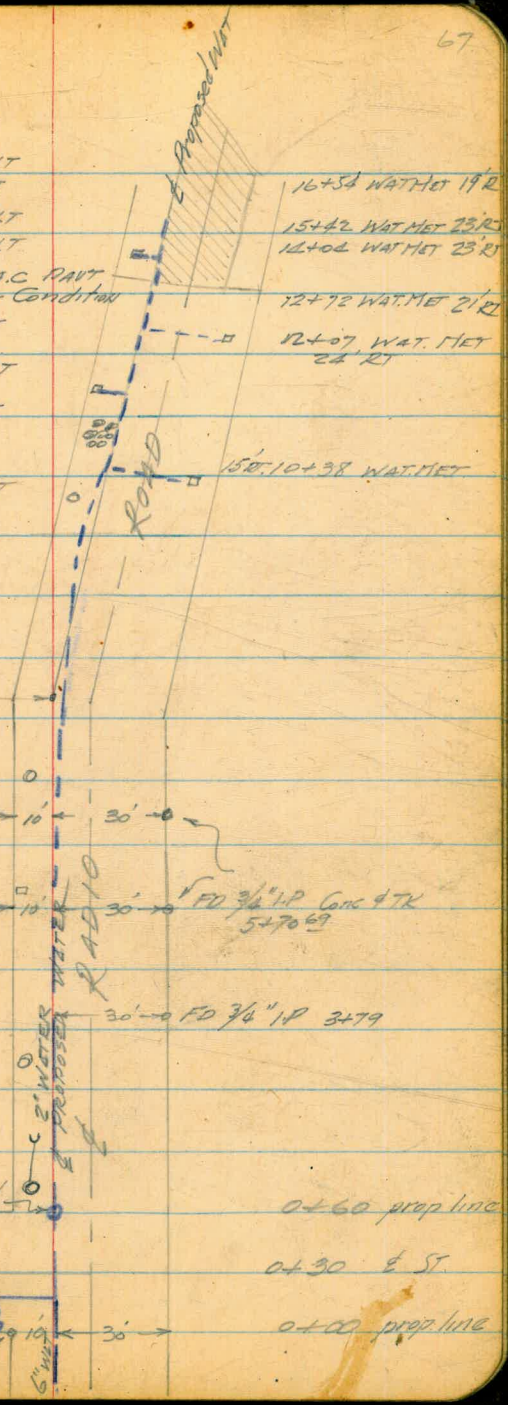 67
℄ Proposed Wat
16+54 WAT MET 19'R
15+42 WAT MET 23'RT
14+04 WAT MET 23'RT
A.C PAVT
Condition
12+72 WAT. MET 21'RT
12+07 WAT. MET
24' RT
15'RT. 10+38 WAT. MET
ROAD
10' 30'
10' 30' FD 3/4" I.P Conc & TK
5+70 69
RADIO
30' FD 3/4" I.P 3+79
2" WATER
℄ PROPOSED WATER
℄
0+60 prop line
0+30 ℄ ST.
10' 30' 0+00 prop. line
6" Wat